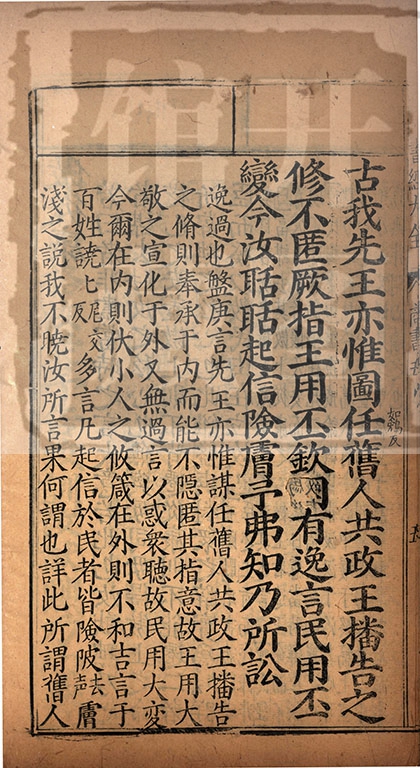 古我先王亦惟圖任舊人共政王播告之
修不匿厥指王用丕欽罔有逸言民用丕
變今汝聒聒起信險膚予弗知乃所訟
逸過也盤庚言先王亦惟謀任舊人共政王播告
之脩則奉承于内而能不隱匿其指意故王用大
敬之宣化于外又無過言以惑衆聽故民用大變
今爾在内則伏小人之攸箴在外則不和吉言于
百姓譊譊尼交反多言凡起信於民者皆險陂去聲膚
淺之說我不曉汝所言果何謂也詳此所謂舊人